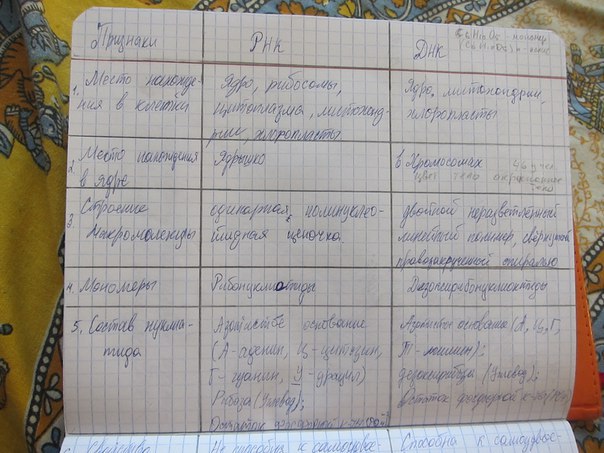 Признаки
РНК
ДНК
C6H10O5 - мономер
(C6H10O5)n -
1. Место нахожде-
ния в клетки
Ядро, рибосомы,
цитоплазма, митохонд-
рии, хлоропласты
Ядро, митохондрии,
хлоропласты
2. Место нахождения
в ядре
Ядрышко
в Хромосомах 46 у чел.
3. Строение
макромолекулы
одинарная полинуклео-
тидная цепочка.
двойной неразветвленный
линейный полимер, свёрнутый
правозакрученной спиралью
4. Мономеры
Рибонуклиотиды
Дезоксирибонуклиотиды
5. Состав нукли-
тида
Азотистое основание
(А-аденин, Ц-цитодин,
Г-гуанин, У-урацил)
Рибоза (Углевод);
Остаток фосфорной к-ты
Азотистое основание (А, Ц, Г,
Т-тимин);
дезоксирибоза (Углевод);
Остаток фосфорной к-ты
Свойства
Не способна к самоудвое-
Способна к самоудвое-